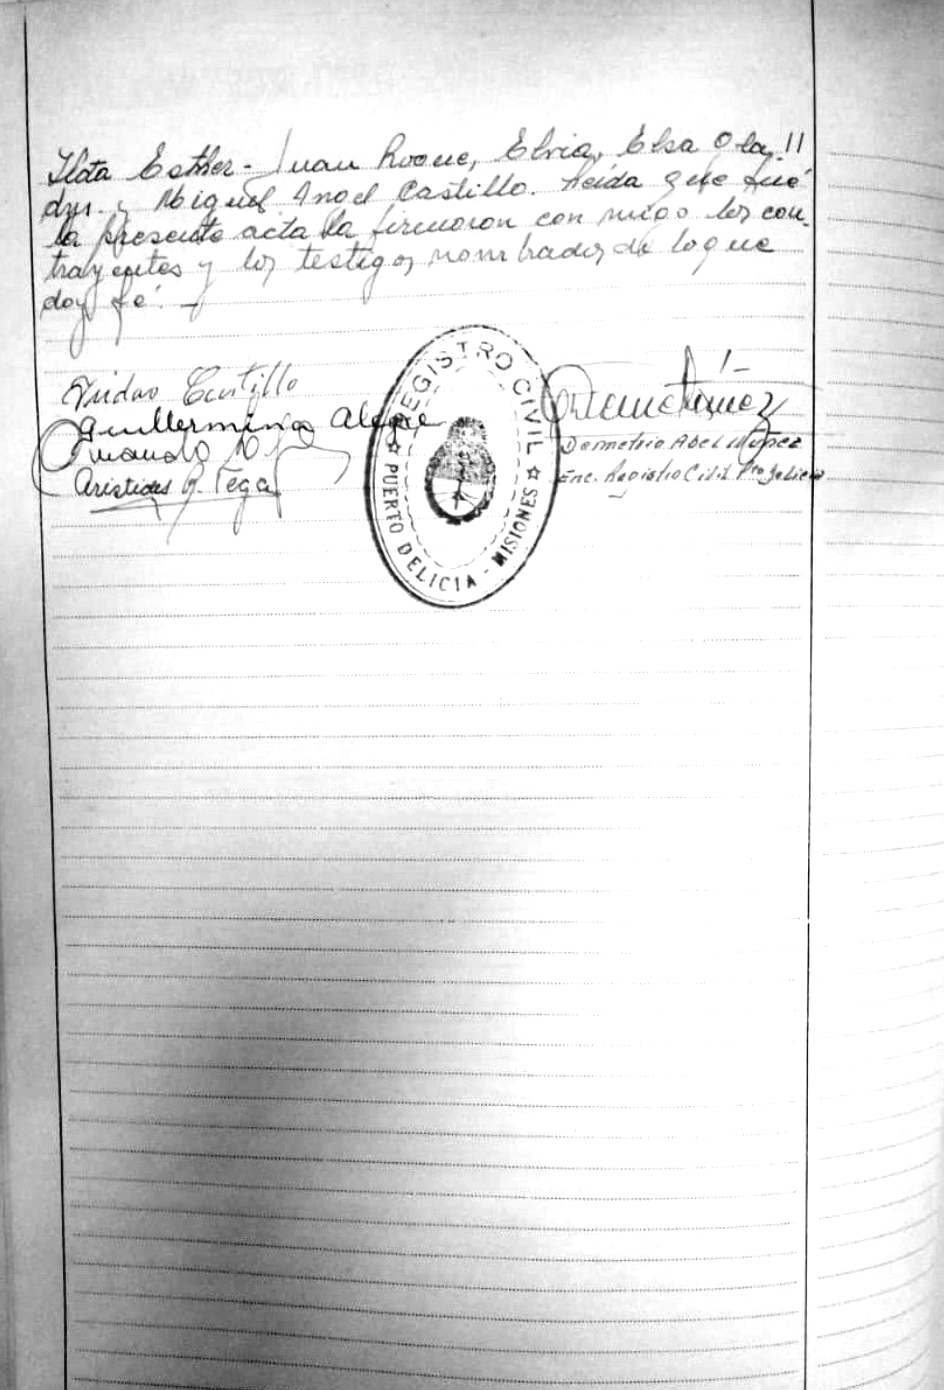 Ilda Esther - Juan Roque, Elvia, Elsa
y Miguel Angel Castillo. Leida que fué
la presente acta la firmaron con migo los con-
trayentes y los testigos nombrados de lo que
doy fé. -
Castillo
Guillermina Alegre
Aristides R. Vega
REGISTRO CIVIL
PUERTO DELICIA - MISIONES
Demetrio Abel
Enc. Registro Civil Pto Delicia